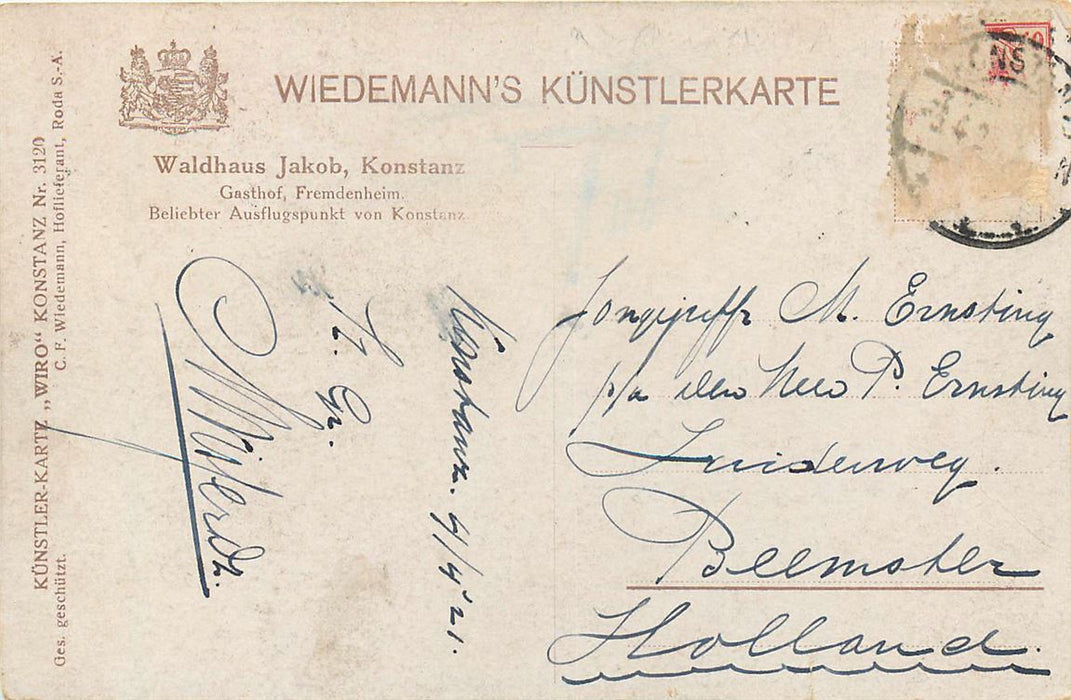 WIEDEMANN'S KÜNSTLERKARTE
Waldhaus Jakob, Konstanz
Gasthof, Fremdenheim.
Beliebter Ausflugspunkt von Konstanz.
KÜNSTLER-KARTE „WIRO“ KONSTANZ Nr. 3120
C. F. Wiedemann, Hoflieferant, Roda S.-A.
Ges. geschützt.
Konstanz. 4/4 '21.
Gr.
M. Ernsting
p/a den Heer P. Ernsting
Zuiderweg.
Beemster
Holland.